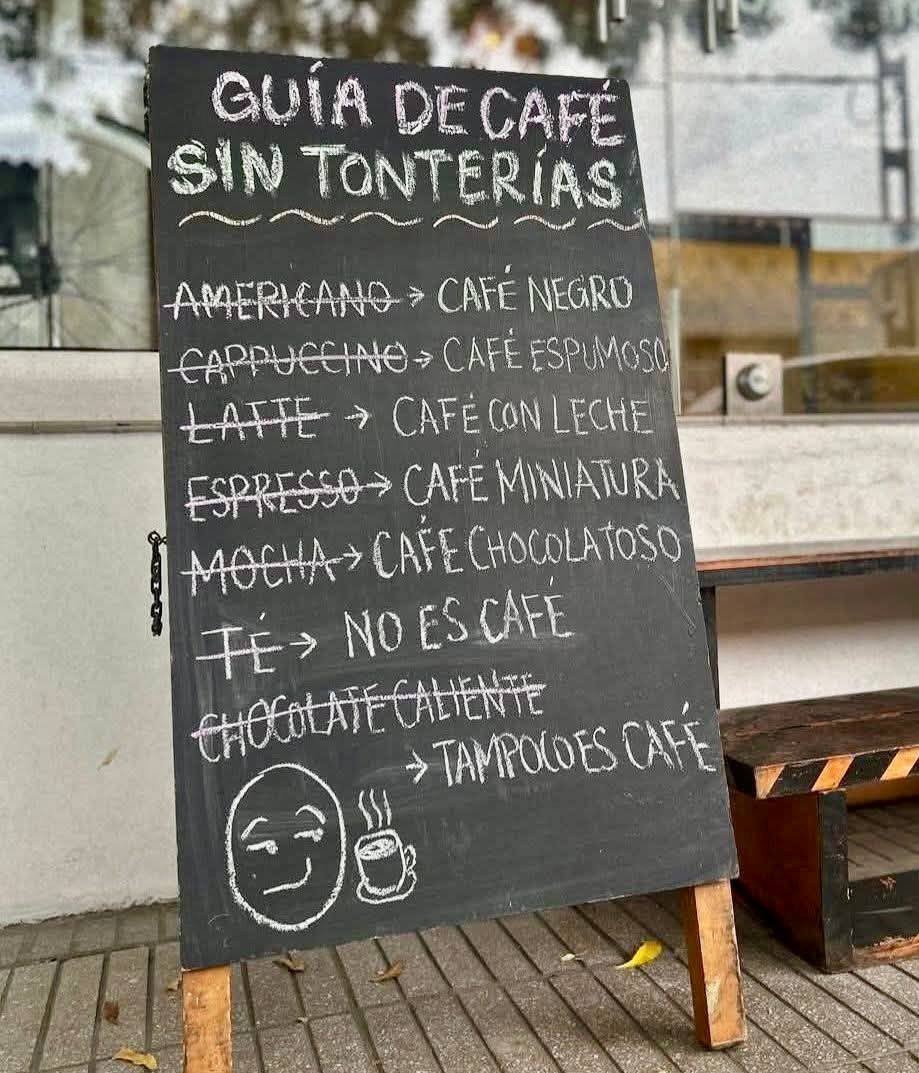 GUÍA DE CAFÉ
SIN TONTERÍAS
AMERICANO → CAFÉ NEGRO
CAPPUCCINO → CAFÉ ESPUMOSO
LATTE → CAFÉ CON LECHE
ESPRESSO → CAFÉ MINIATURA
MOCHA → CAFÉ CHOCOLATOSO
TÉ → NO ES CAFÉ
CHOCOLATE CALIENTE
→ TAMPOCO ES CAFÉ